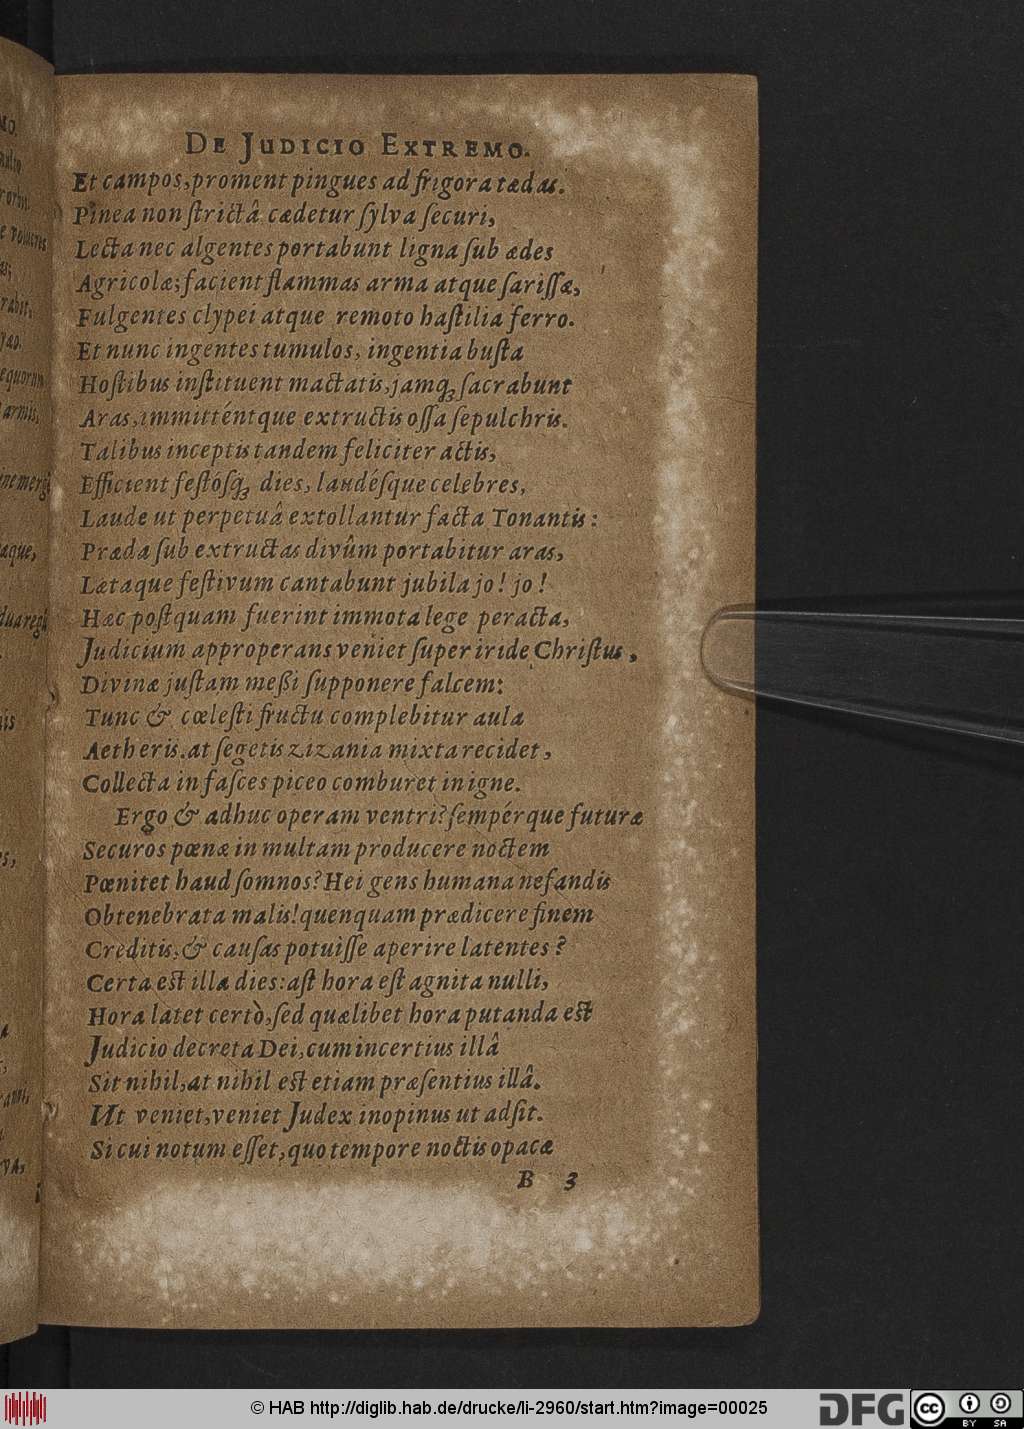 DE JUDICIO EXTREMO.
Et campos, proment pingues ad frigora tædas.
Pinea non ſtrictâ cædetur ſylva ſecuri,
Lecta nec algentes portabunt ligna ſub ædes
Agricolæ; facient flammas arma atque ſariſſæ,
Fulgentes clypei atque remoto haſtilia ferro.
Et nunc ingentes tumulos, ingentia buſta
Hoſtibus inſtituent mactatis, jamq́ꝫ ſacrabunt
Aras, immitténtque extructis oſſa ſepulchris.
Talibus inceptis tandem feliciter actis,
Efficient feſtóſq́ꝫ dies, laudéſque celebres,
Laude ut perpetuâ extollantur facta Tonantis:
Præda ſub extructas divûm portabitur aras,
Lætaque feſtivum cantabunt jubila jo! jo!
Hæc poſtquam fuerint immota lege peracta,
Judicium approperans veniet ſuper iride Chriſtus,
Divinæ juſtam meßi ſupponere falcem:
Tunc & cœleſti fructu complebitur aula
Aetheris. at ſegetis zizania mixta recidet,
Collecta in faſces piceo comburet in igne.
Ergo & adhuc operam ventri? ſempérque futuræ
Securos pœnæ in multam producere noctem
Pœnitet haud ſomnos? Hei gens humana nefandis
Obtenebrata malis! quenquam prædicere finem
Creditis, & cauſas potuìſſe aperire latentes?
Certa eſt illa dies: aſt hora eſt agnita nulli,
Hora latet certò, ſed quælibet hora putanda eſt
Judicio decreta Dei, cum incertius illâ
Sit nihil, at nihil eſt etiam præſentius illâ.
Ut veniet, veniet Judex inopinus ut adſit.
Si cui notum eſſet, quo tempore noctis opacæ
B 3
© HAB http://diglib.hab.de/drucke/li-2960/start.htm?image=00025
DFG
cc BY SA